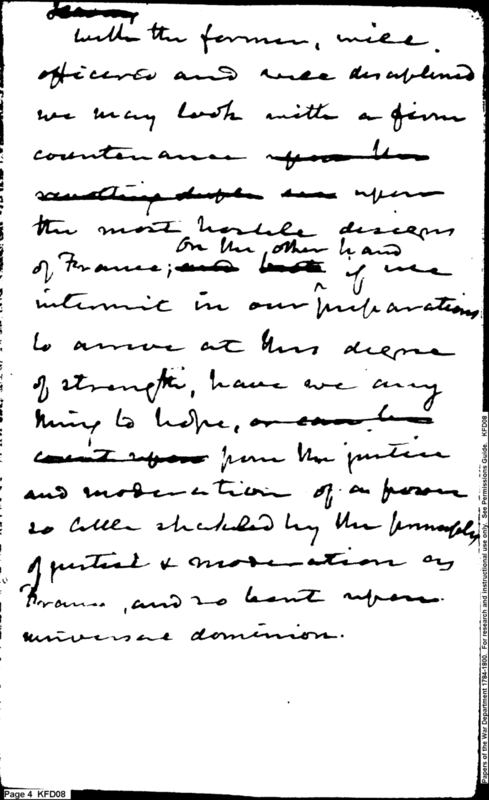 with the former, well
officered and well disciplined
we may look with a firm
countenance upon the
revolting upon
the most hostile designs
On the other hand
of France; and both if we
intermit in our preparations
to arrive at this degree
of strength, have we any
thing to hope, or can be
count upon from the justice
and moderation of a power
so little shakled by the principles
of justice & moderation as
France, and so bent upon
universal dominion.
Page 4 KFD08
Papers of the War Department 1784-1800. For research and instructional use only. See Permissions Guide. KFD08